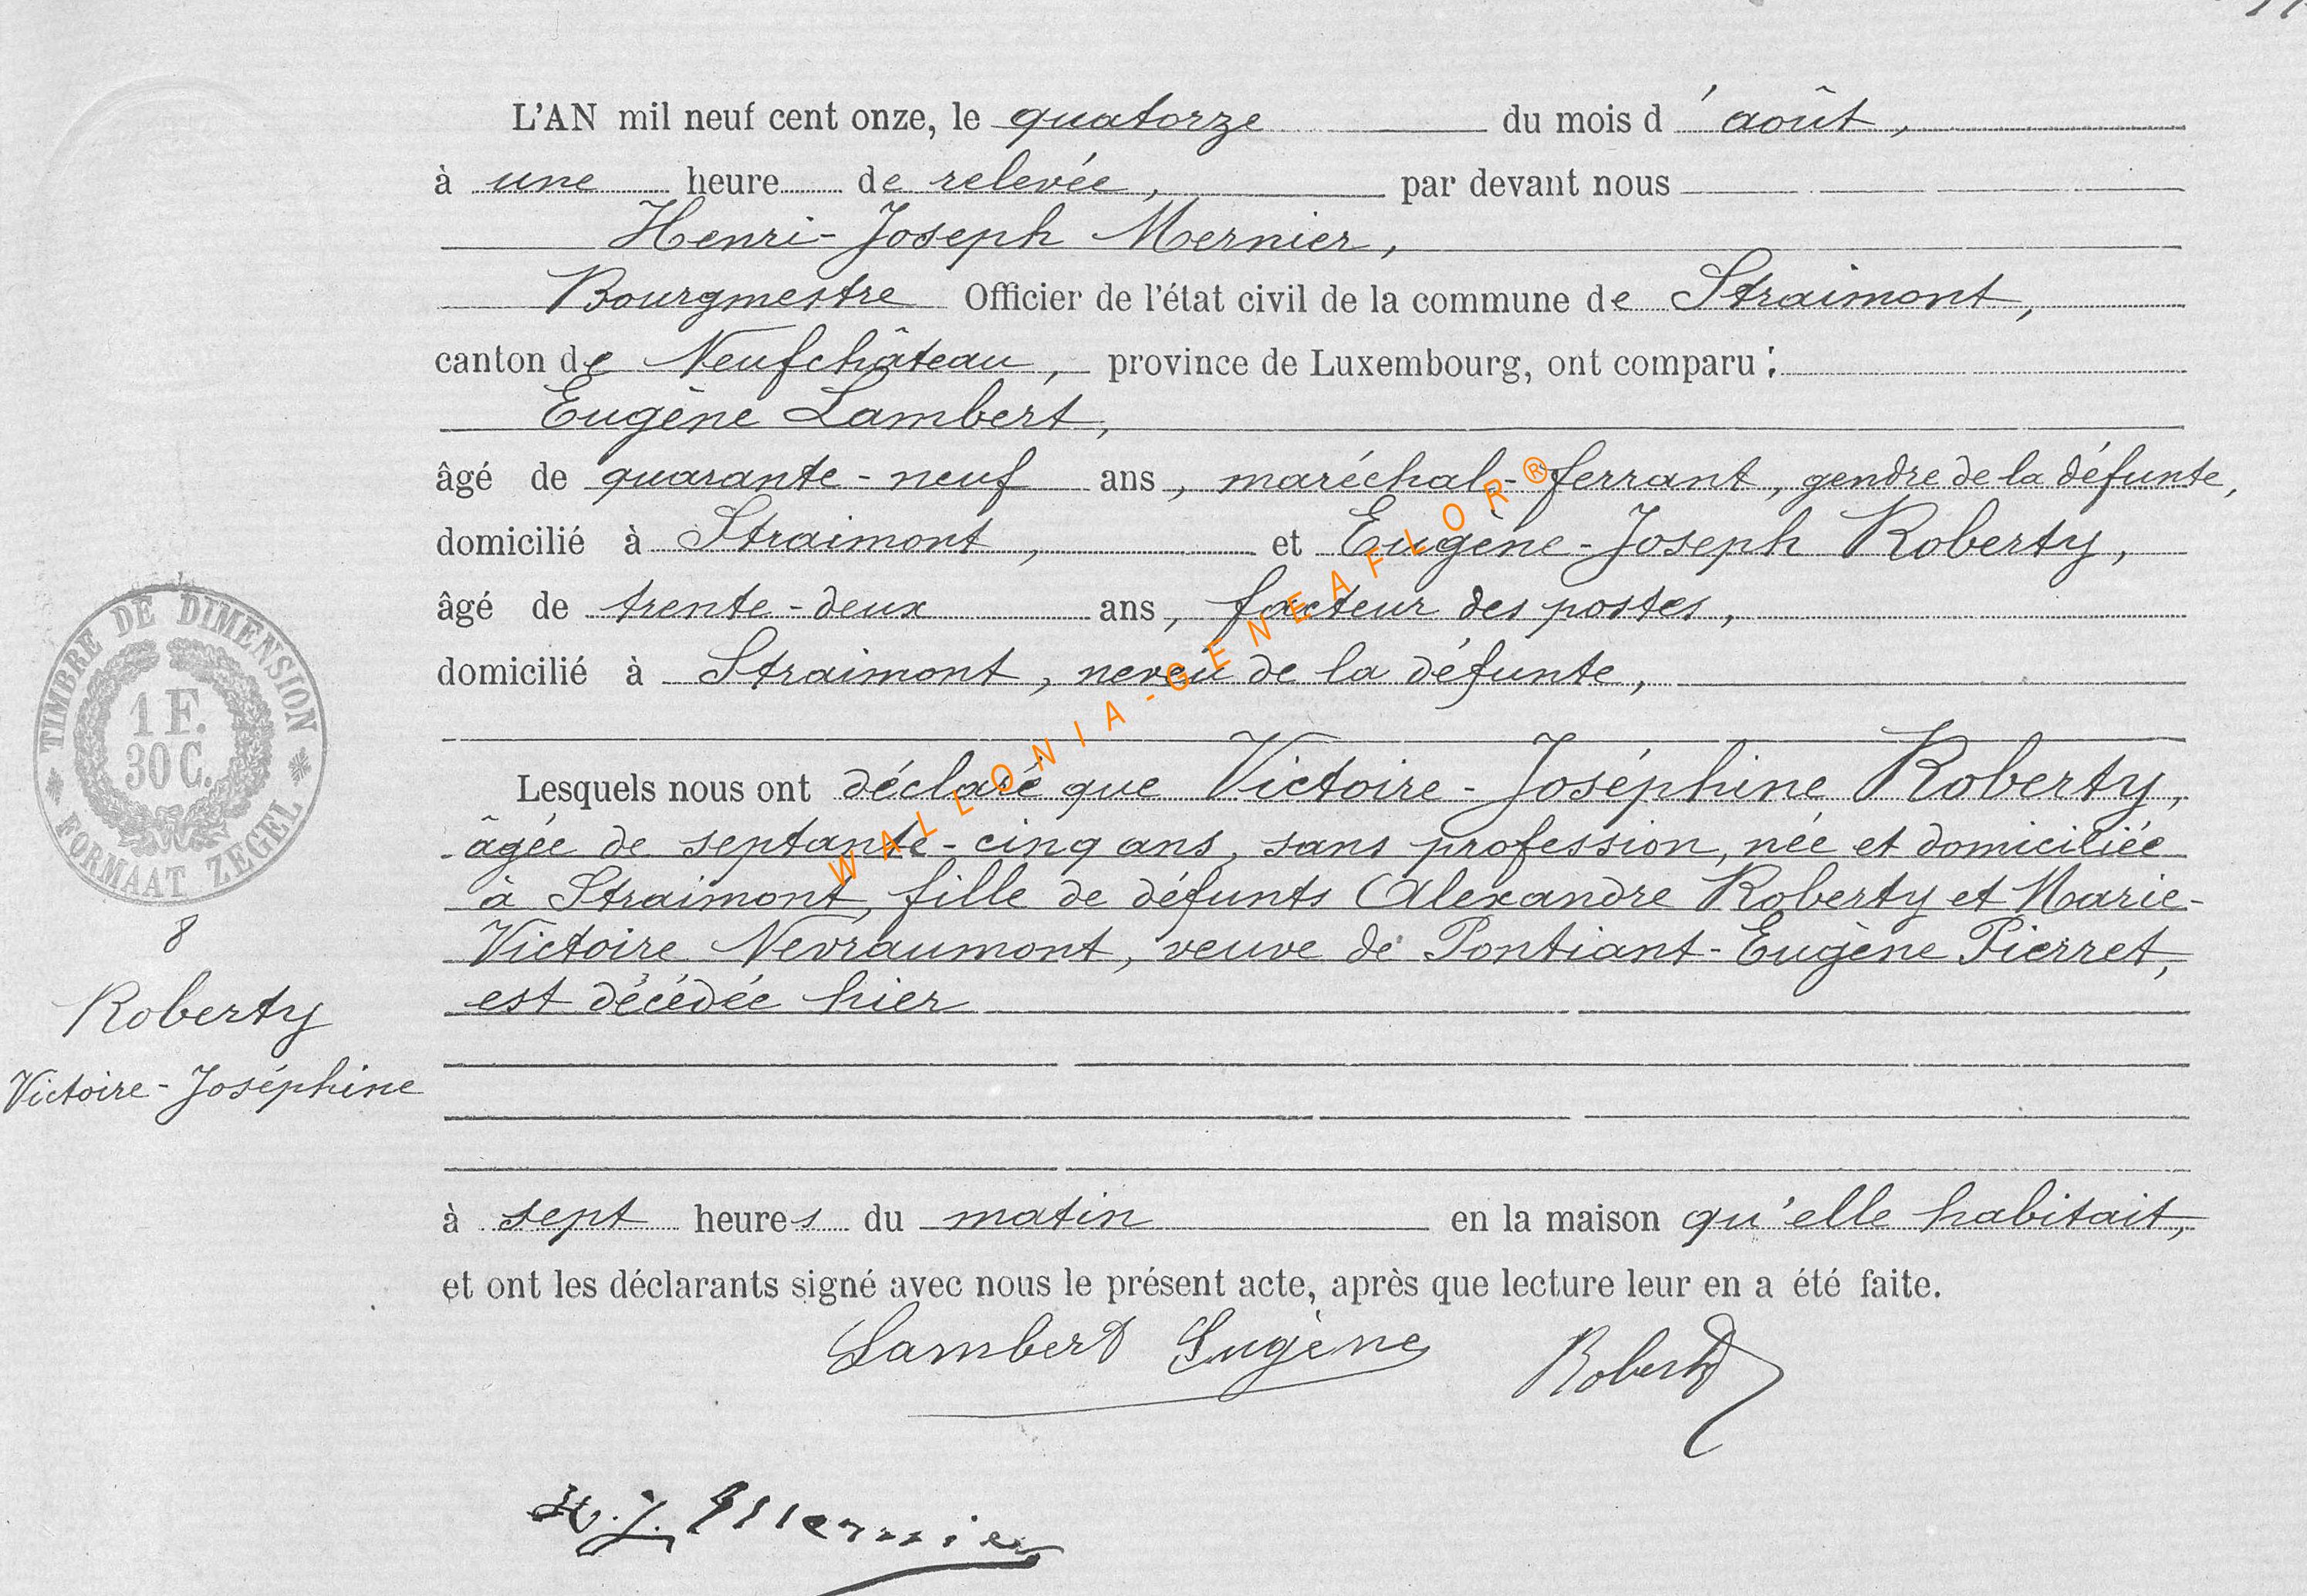 L'AN mil neuf cent onze, le quatorze du mois d'août,
à une heure de relevée, par devant nous
Henri-Joseph Mernier,
Bourgmestre Officier de l'état civil de la commune de Straimont,
canton de Neufchâteau, province de Luxembourg, ont comparu :
Eugène Lambert,
âgé de quarante-neuf ans, maréchal-ferrant, gendre de la défunte,
domicilié à Straimont, et Eugène-Joseph Roberty,
âgé de trente-deux ans, facteur des postes,
domicilié à Straimont, neveu de la défunte,
Lesquels nous ont déclaré que Victoire-Joséphine Roberty,
âgée de septante-cinq ans, sans profession, née et domiciliée
à Straimont, fille de défunts Alexandre Roberty et Marie-
Victoire Nevraumont, veuve de Pontiant-Eugène Pierret,
est décédée hier
à sept heures du matin en la maison qu'elle habitait,
et ont les déclarants signé avec nous le présent acte, après que lecture leur en a été faite.
Lambert Eugène Roberty
H. J. Mernier
TIMBRE DE DIMENSION
1 F.
30 C.
FORMAAT ZEGEL
8
Roberty
Victoire-Joséphine
WALLONIA-GENEAFLOR®